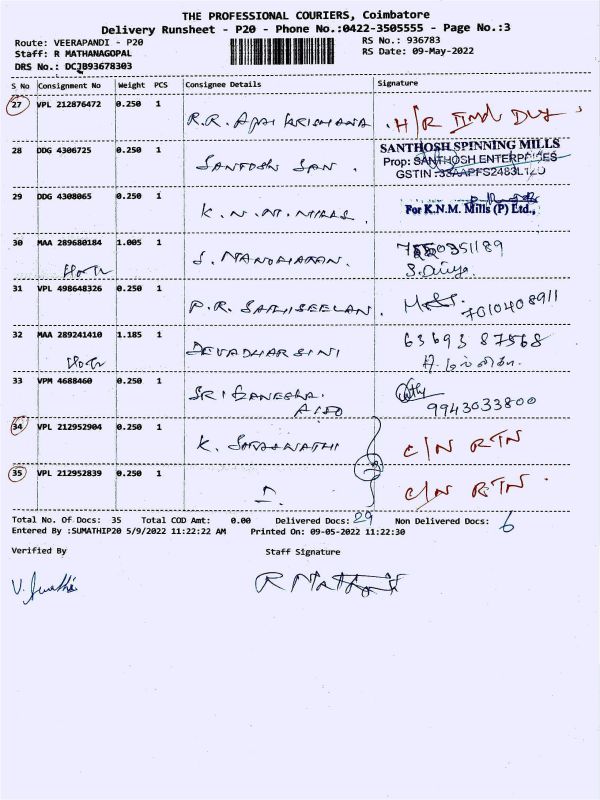 THE PROFESSIONAL COURIERS, Coimbatore
Delivery Runsheet - P20 - Phone No.:0422-3505555 - Page No.:3
Route: VEERAPANDI - P20
Staff: R MATHANAGOPAL
DRS No.: DCJB93678303
RS No.: 936783
RS Date: 09-May-2022
S No Consignment No Weight PCS Consignee Details Signature
27 VPL 212876472 0.250 1 R.R. KRISHANA H/R
28 DDG 4306725 0.250 1 SANTOSH SPN. SANTHOSH SPINNING MILLS
Prop: SANTHOSH ENTERPRISES
GSTIN
29 DDG 4308065 0.250 1 K.N.M. MILLS. For K.N.M. Mills (P) Ltd.,
30 MAA 289680184 1.005 1 J. MANOHARAN. 0351189
31 VPL 498648326 0.250 1 P.R. SATHISEELAN. 7010408911
32 MAA 289241410 1.185 1 DEVADHARSINI 63693 87568
33 VPM 4688460 0.250 1 SRI GANESHA. 9943033800
34 VPL 212952904 0.250 1 K. C/N RTN
35 VPL 212952839 0.250 1 C/N RTN.
Total No. Of Docs: 35 Total COD Amt: 0.00 Delivered Docs: 29 Non Delivered Docs: 6
Entered By :SUMATHIP20 5/9/2022 11:22:22 AM Printed On: 09-05-2022 11:22:30
Verified By Staff Signature